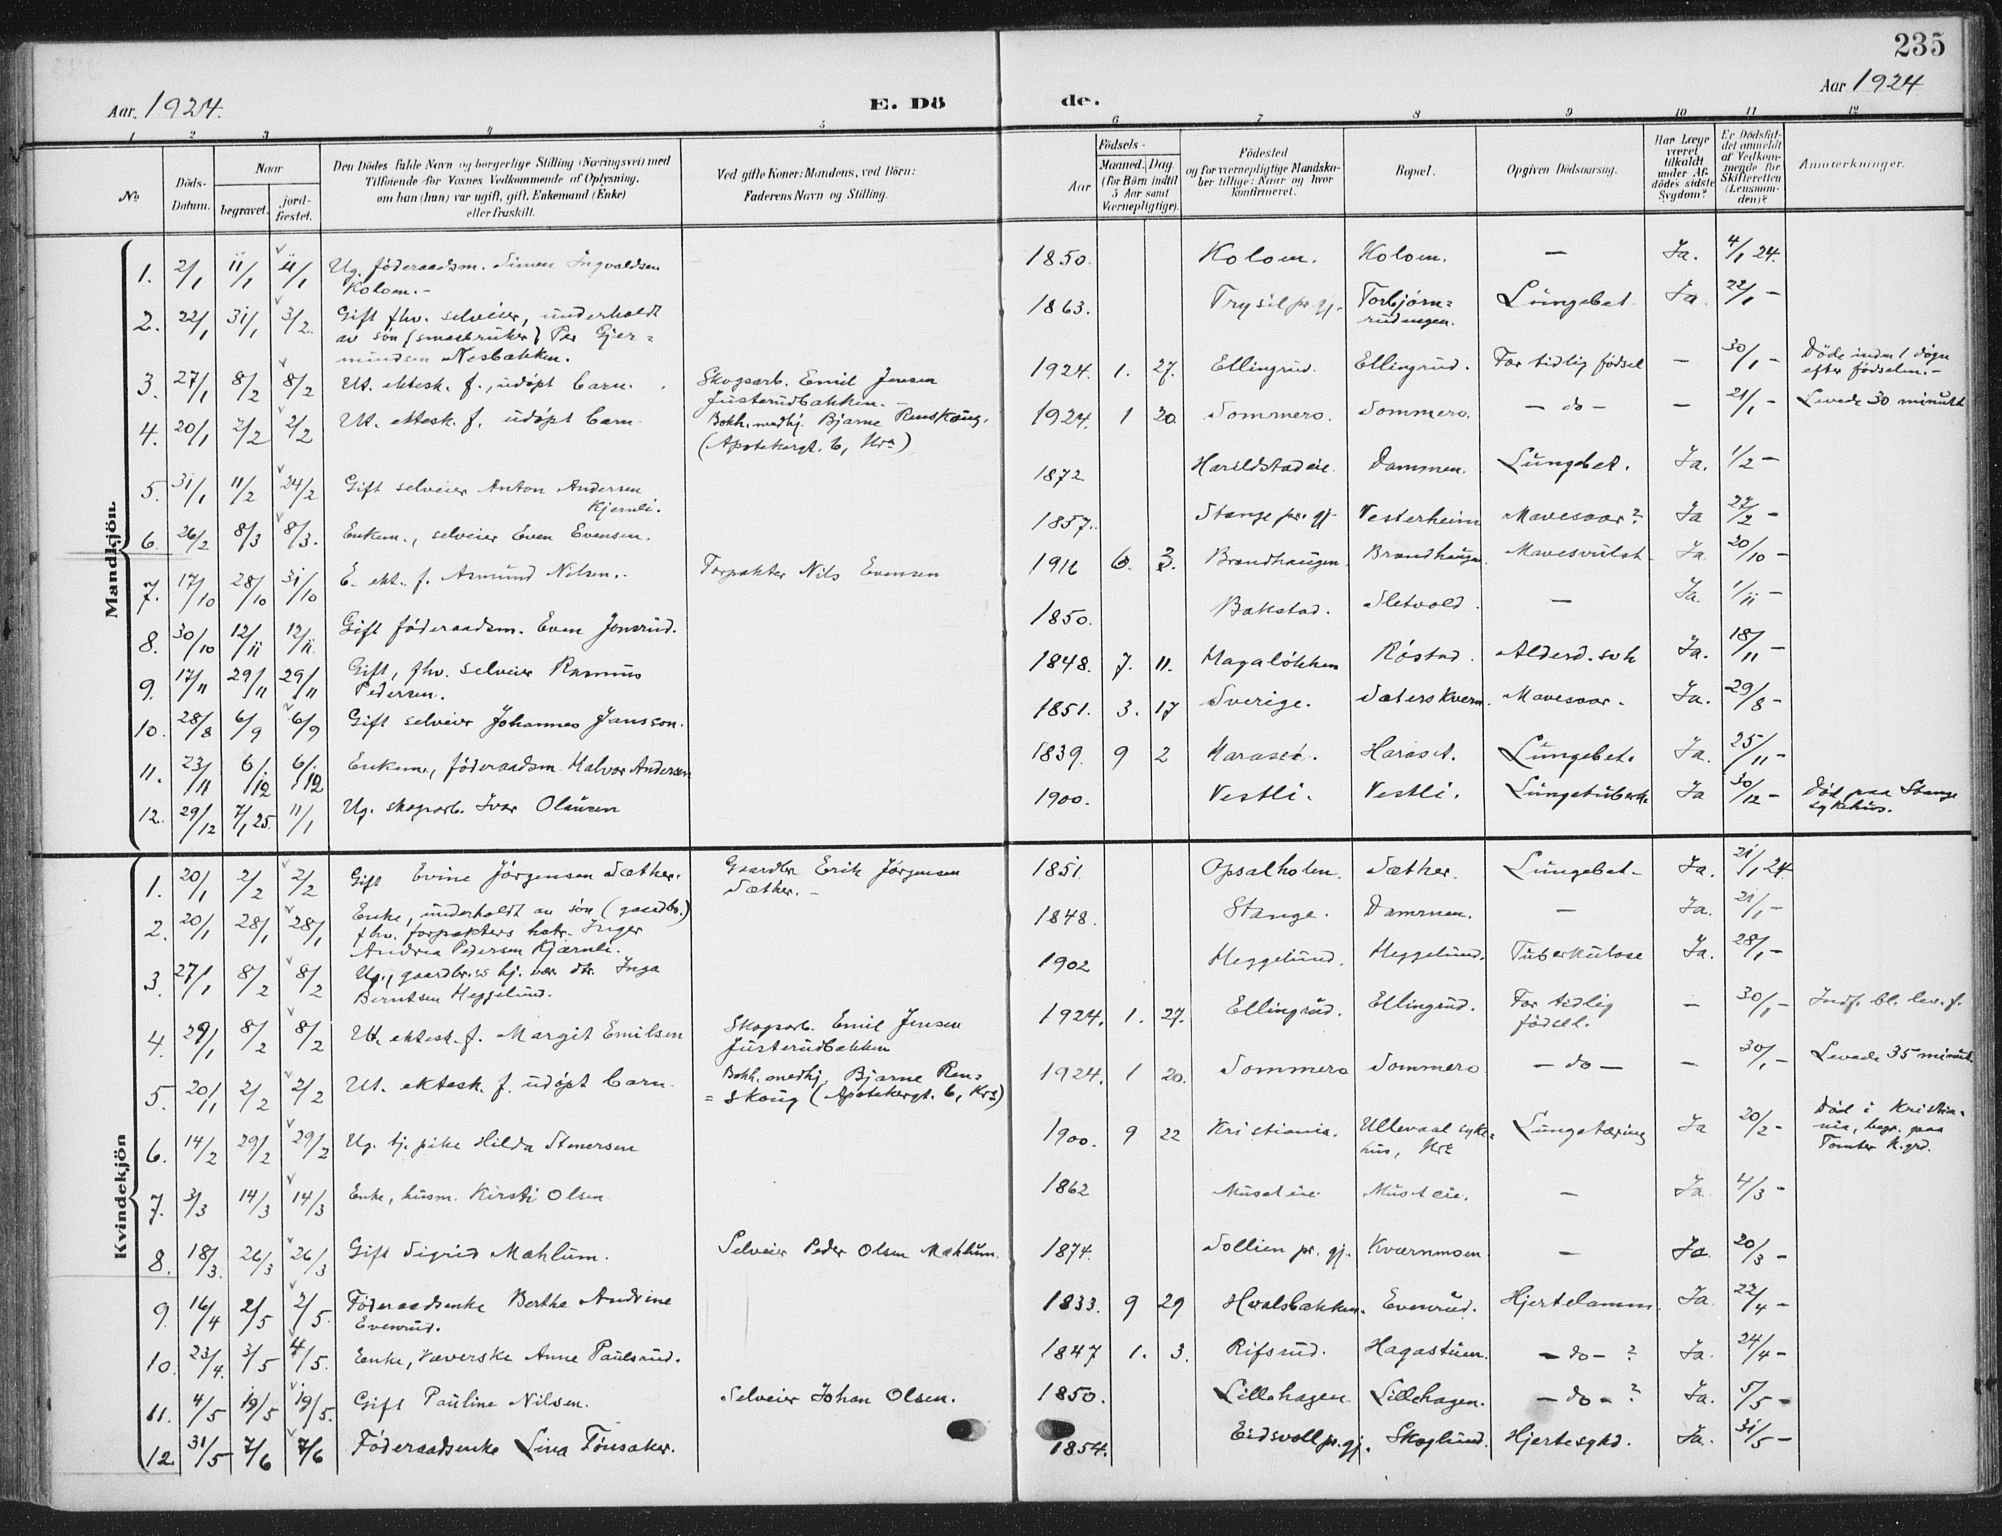 235
Aar. 1924.
E. Dö
de.
Aar 1924
1 2 3 4 5 6 7 8 9 10 11 12
No
Döds-
Datum.
Naar
begravet.
jord-
fæstet.
Den Dödes fulde Navn og borgerlige Stilling (Næringsvei) med
Tilföiende for Voxnes Vedkommende af Oplysning,
om han (hun) var ugift, gift, Enkemand (Enke)
eller fraskilt.
Ved gifte Koner: Mandens, ved Börn:
Faderens Navn og Stilling.
Födsels-
Aar
Maaned. Dag.
(for Börn indtil
5 Aar samt
Værnepligtige).
Födested
og for værnepligtige Mandska-
ber tillige: Naar og hvor
konfirmeret.
Bopæl.
Opgiven Dödsaarsag.
Har Læge
været
tilkaldt
under Af-
dödes sidste
Sygdom?
Er Dödsfal-
det anmeldt
af Vedkom-
mende for
Skifteretten
(Lensman-
den)?
Anmerkninger.
Mandkjön.
1. 2/1 11/1 11/1 Ug. föderaadsm. Simen Ingvaldsen
Kolom.- 1850. Kolom. Kolom. — Ja. 4/1 24.
2. 22/1 31/1 3/2. Gift fhv. selveier, underholdt
av sön (smaabruker) Per Gjer=
mundsen Nesbakken. 1863. Trysil pr. gj. Torbjørn=
rudengen. Lungebet. Ja. 22/1 -
3. 27/1 8/2 8/2 Ut. ektesk. f., udöpt barn. Skogsarb. Emil Jensen
Justerudbakken. - 1924. 1. 27. Ellingrud. Ellingrud. For tidlig födsel — 30/1 - Döde inden 1 dögn
efter födselen. -
4. 20/1 2/2 2/2 Ut. ektesk. f. udöpt barn. Bokh. medhj. Bjarne Renskoug.
(Apotekergt. 6, Kra) 1924. 1 20. Sommero. Sommero. — do — — 21/1 - Levede 30 minutt
5. 31/1 11/2 24/2 Gift selveier Anton Andersen
Kjernli. 1872. Harildstadeie. Dammen. Lungebet. Ja. 1/2 -
6. 26/2 8/3 8/3. Enkem., selveier Even Evensen. 1857. Stange pr. gj. Vesterheim Mavesaar? Ja 27/2 -
7. 17/10 28/10 31/10 E. ekt. f. Asmund Nilsen. Forpakter Nils Evensen 1916 6. 3. Brandhaugen. Brandhaugen. Mavesvulst Ja. 20/10 -
8. 30/10 12/11 12/11. Gift föderaadsm. Even Jonsrud. 1850. Bakstad. Sletvold. — Ja. 1/11 -
9. 17/11 29/11 29/11 Gift, fhv. selveier Rasmus
Pedersen. 1848. 7. 11. Magalökken Röstad. Alderd.svk Ja. 18/11 -
10. 28/8 6/9 6/9 Gift selveier Johannes Jansson. 1851. 3. 17 Sverige. Sæterskvern. Mavesaar. Ja. 29/8 -
11. 23/11 6/12 6/12 Enkem., föderaadsm. Halvor Andersen 1839. 9 2 Haraset. Haraset. Lungebet. Ja. 25/11 -
12. 29/12 7/1 25. 11/1 Ug. skogsarb. Ivar Olausen 1900. Vestli. Vestli. Lungetuberk. Ja 30/12 - Död paa Stange
sykehus.
Kvindekjön
1. 20/1 2/2 2/2 Gift Evine Jörgensen Sæther. Gaardbr. Erik Jörgensen
Sæther. - 1851. Opsalholen. Sæther. Lungebet. Ja. 21/1 24
2. 20/1 28/1 28/1 Enke, underholdt av sön (gaardbr.)
fhv. forpakters hstr. Inger
Andrea Pedersen Kjærnli. 1848. Stange. Dammen. — Ja. 21/1 -
3. 27/1 8/2 8/2 Ug., gaardbr.s hj. vær. dtr. Inga
Berntsen Heggelund. 1902 Heggelund. Heggelund. Tuberkulose Ja. 28/1 -
4. 29/1 8/2 8/2 Ut. ektesk. f. Margit Emilsen Skogsarb. Emil Jensen
Justerudbakken 1924. 1. 27. Ellingrud. Ellingrud. For tidlig
födsel. — 30/1 - Indf. bl. lev. f.
5. 20/1 2/2 2/2 Ut. ektesk. f. udöpt barn. Bokh. medhj. Bjarne Ren=
= skoug (Apotekergt. 6, Kra) 1924. 1 20. Sommero Sommero — do — — 30/1 - Levede 35 minutt
6. 14/2 29/2 29/2 Ug. tj. pike Hilda Stenersen 1900. 9 22 Kristiania. Ullevaal syke=
hus, Kra Lungetæring Ja 20/2 - Död i Kristia=
nia, begr. paa
Tomter K.grd.
7. 3/3 14/3 14/3 Enke, husm. Kirsti Olsen 1862 Musteie. Musteie. — Ja. 4/3 -
8. 18/3. 26/3 26/3 Gift Sigrid Mæhlum. Selveier Peder Olsen Mæhlum. 1874. Sollien pr. gj. Kværnmoen. — Ja. 20/3 -
9. 16/4 2/5 2/5. Föderaadsenke Berthe Andrine
Evenrud. 1833. 9 29 Hvalsbakken. Evenrud. Hjertelamm. Ja. 22/4 -
10. 23/4. 3/5 4/5. Enke, væverske Anne Paulsrud. 1847 1. 3. Rifsrud. Hagastuen. — do — ? Ja. 24/4 -
11. 4/5 19/5 19/5. Gift Pauline Nilsen. Selveier Johan Olsen. 1850. Lillehagen. Lillehagen. — do — ? Ja. 5/5 -
12. 31/5 7/6 7/6 Föderaadsenke Lina Tönsaker. 1854. Eidsvoll pr. gj. Skoglund. Hjertesykd. Ja. 31/5 -